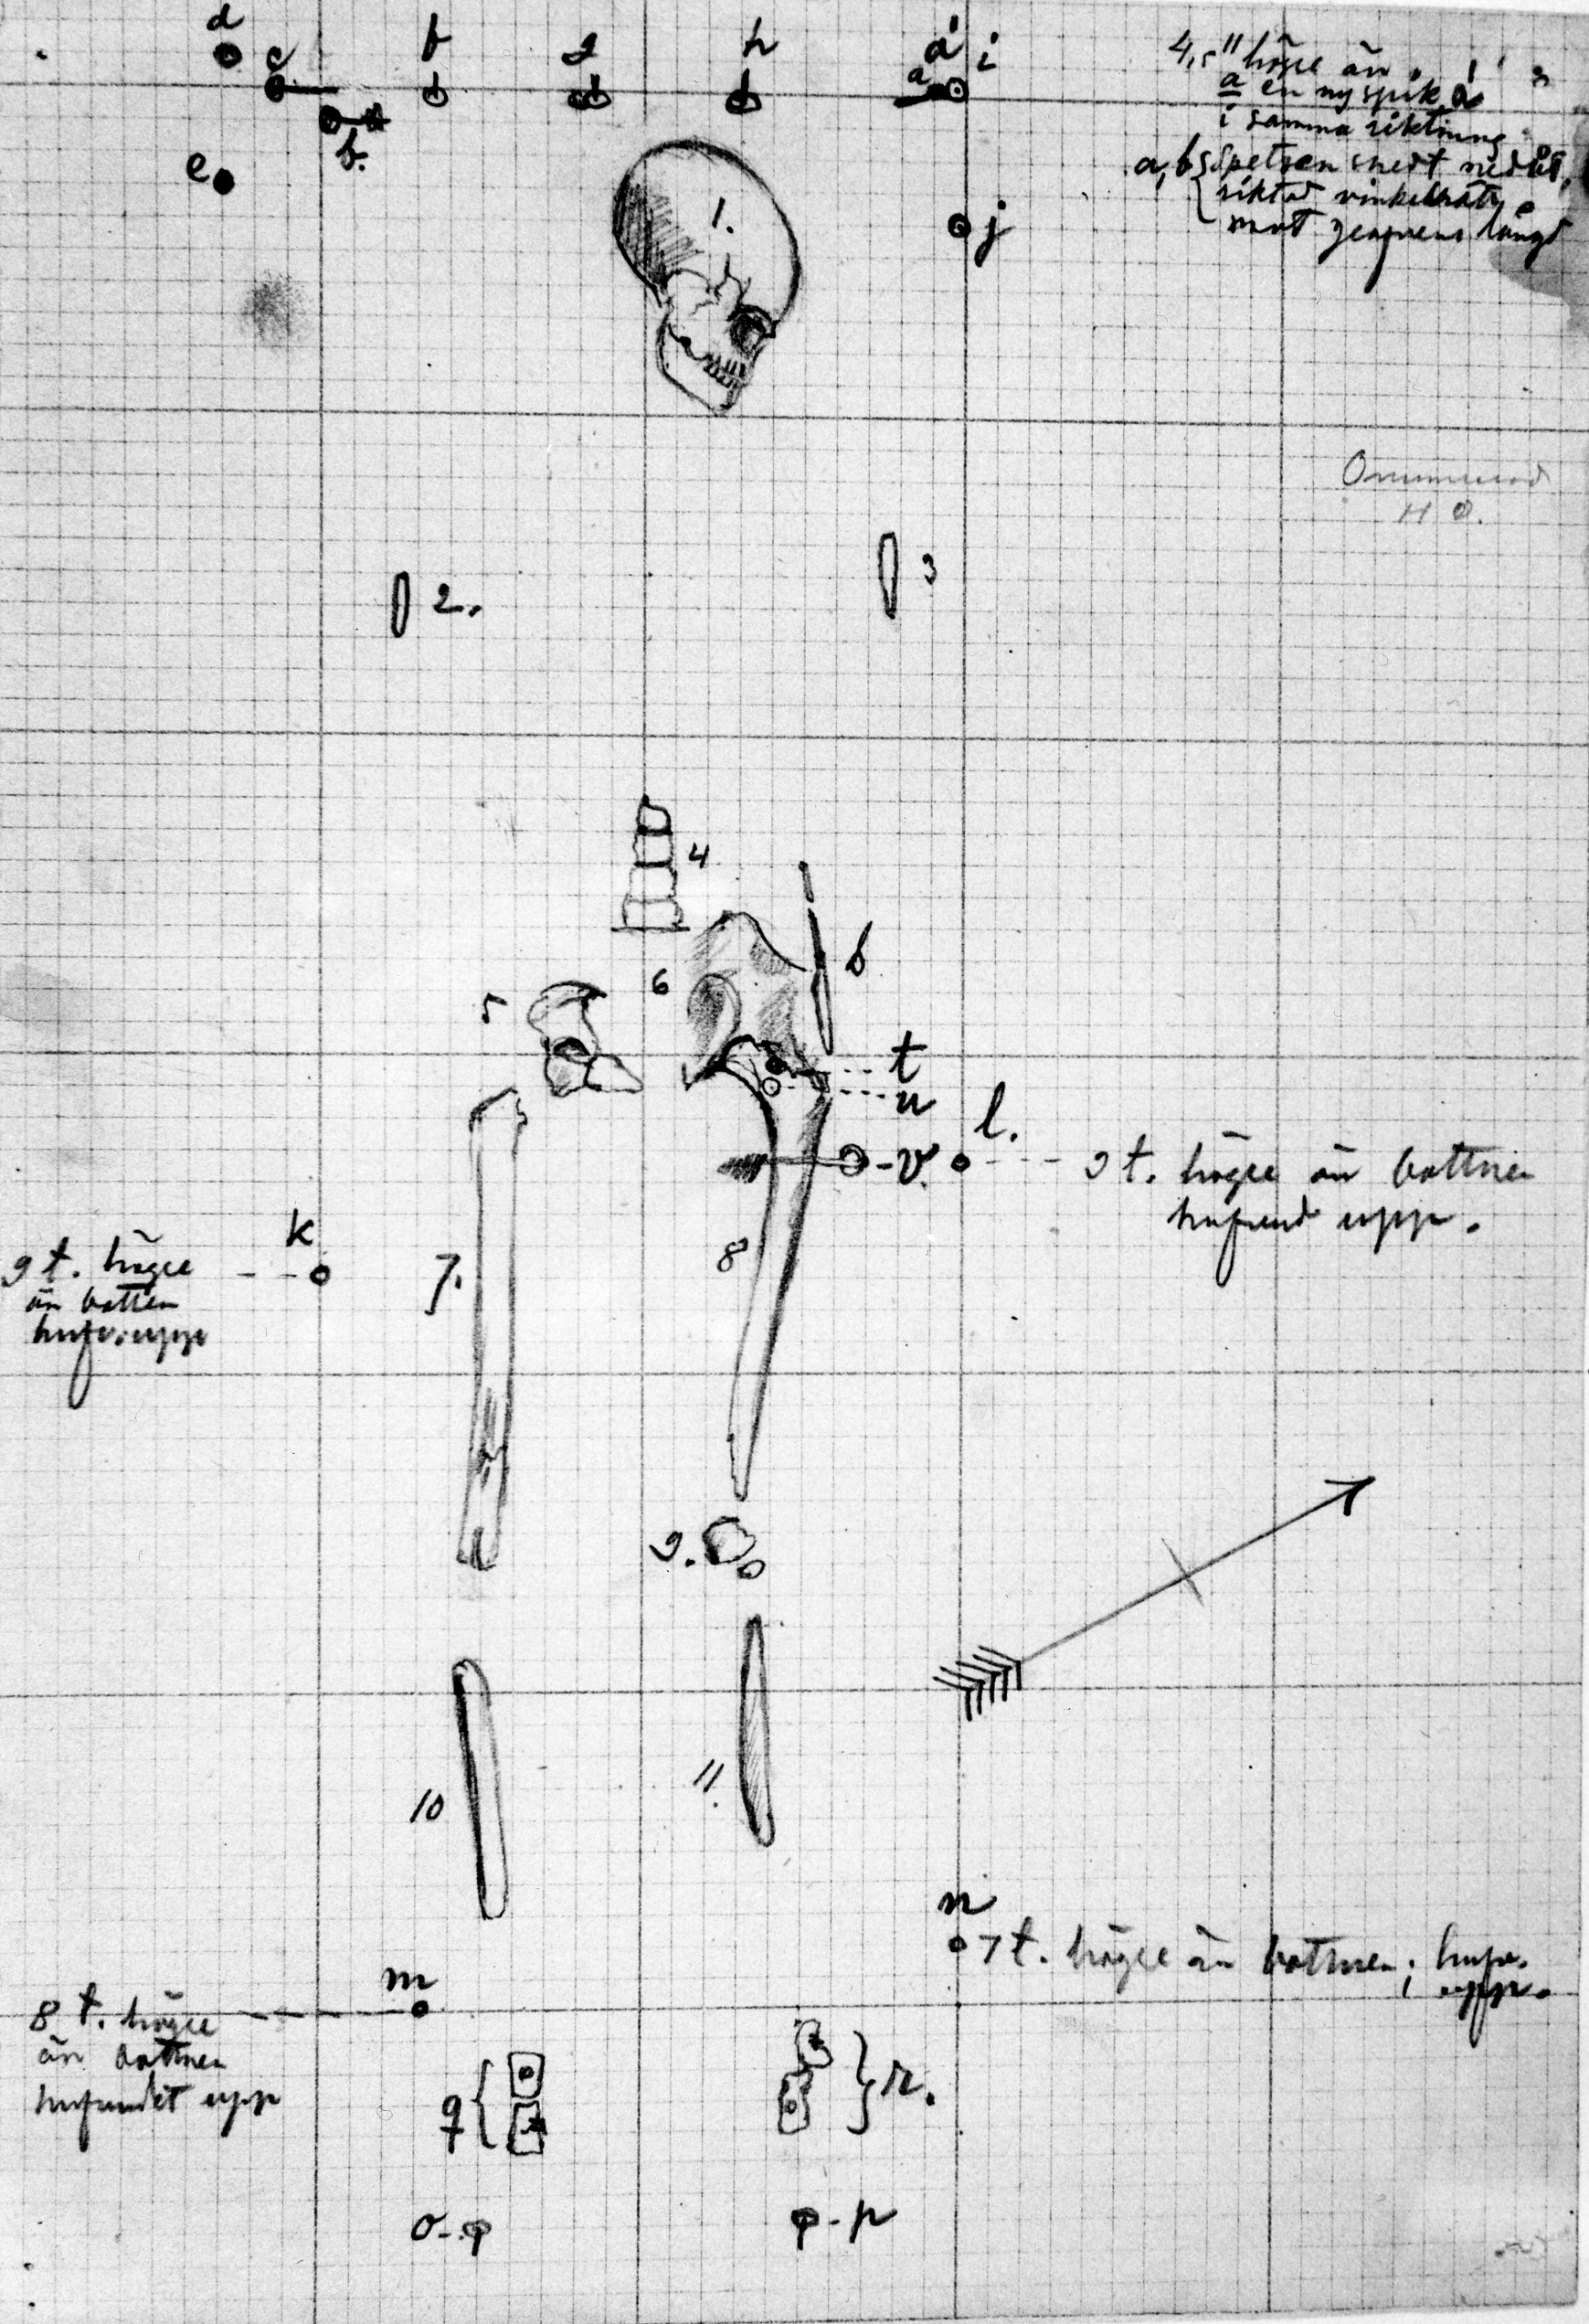 d
c
f
g
h
a' i
a
b.
e
j
4,5" högre än
a en ny spik a'
i samma riktning
a, b spetsen snett nedåt,
riktad vinkelrätt
mot gravens längd
1.
Onumrerad
H Ö.
2.
3
4
6
s
5
t
u
v.
l.
9 t. högre än bottnen
hufvud upp.
k
9 t. högre
än botten
hufv. upp
7.
8
9.
10
11.
n
7 t. högre än bottnen; hufv.
upp.
m
8 t. högre
än bottnen
hufvudet upp
q
r.
o
p